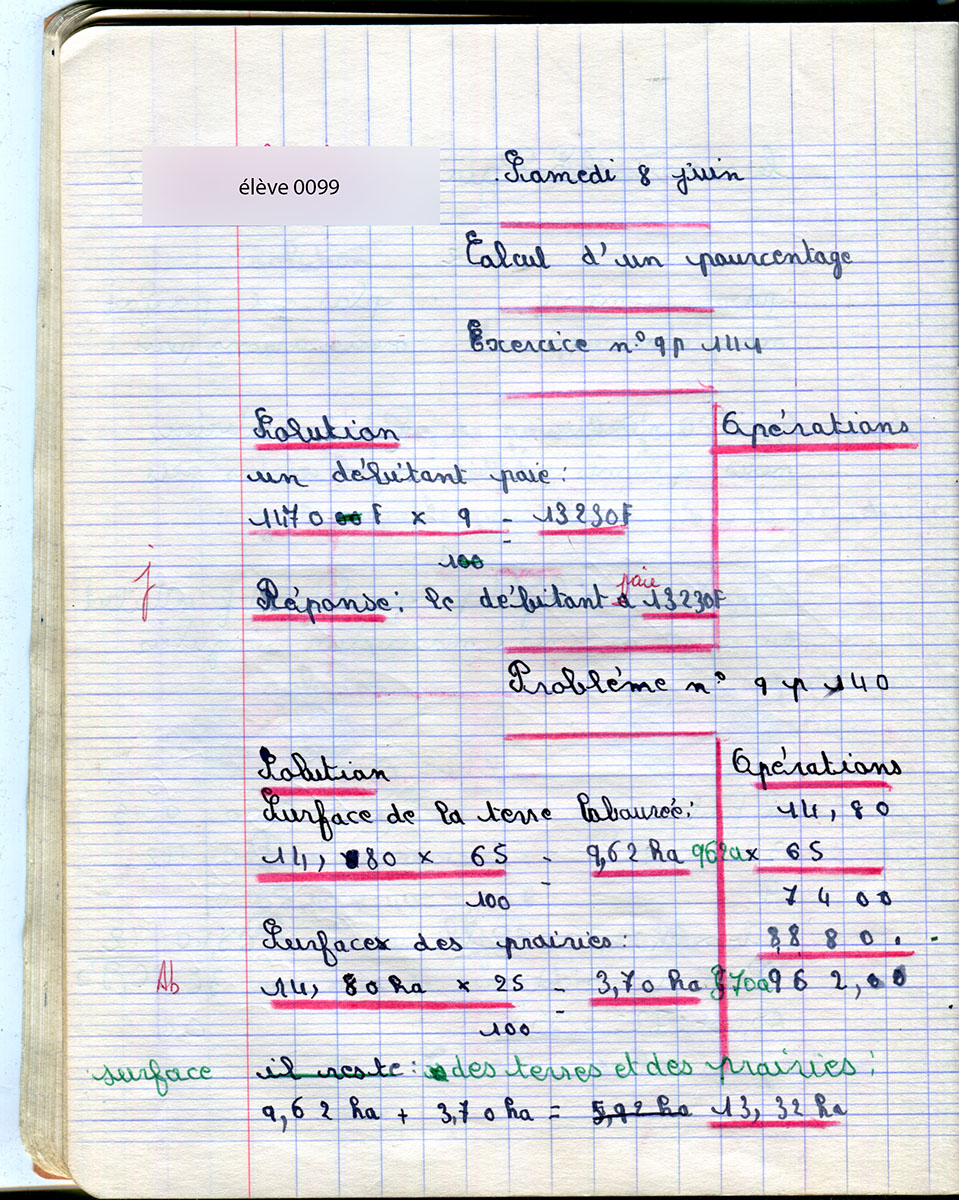 élève 0099
Samedi 8 juin
Calcul d'un pourcentage
Exercice n° 9 p 144
Solution
Opérations
un débutant paie :
1470 00 F x 9 = 13230F
100
j
paie
Réponse : le débutant a 13230F
Problème n° 9 p 140
Solution
Opérations
Surface de la terre labourée :
14,80
14, 80 x 65 = 9,62 ha 962a
x 65
100
7400
Surfaces des prairies :
8880.
Ab
14, 80 ha x 25 = 3,70 ha 370a
962,00
100
surface il reste : des terres et des prairies :
9,62 ha + 3,70 ha = 5,92 ha 13,32 ha